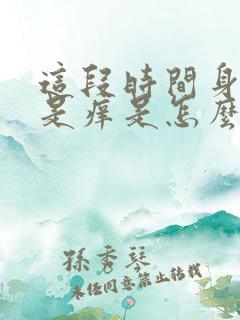 這段時間身
是痒是怎麼
孫秀琴
未经同意禁止转载